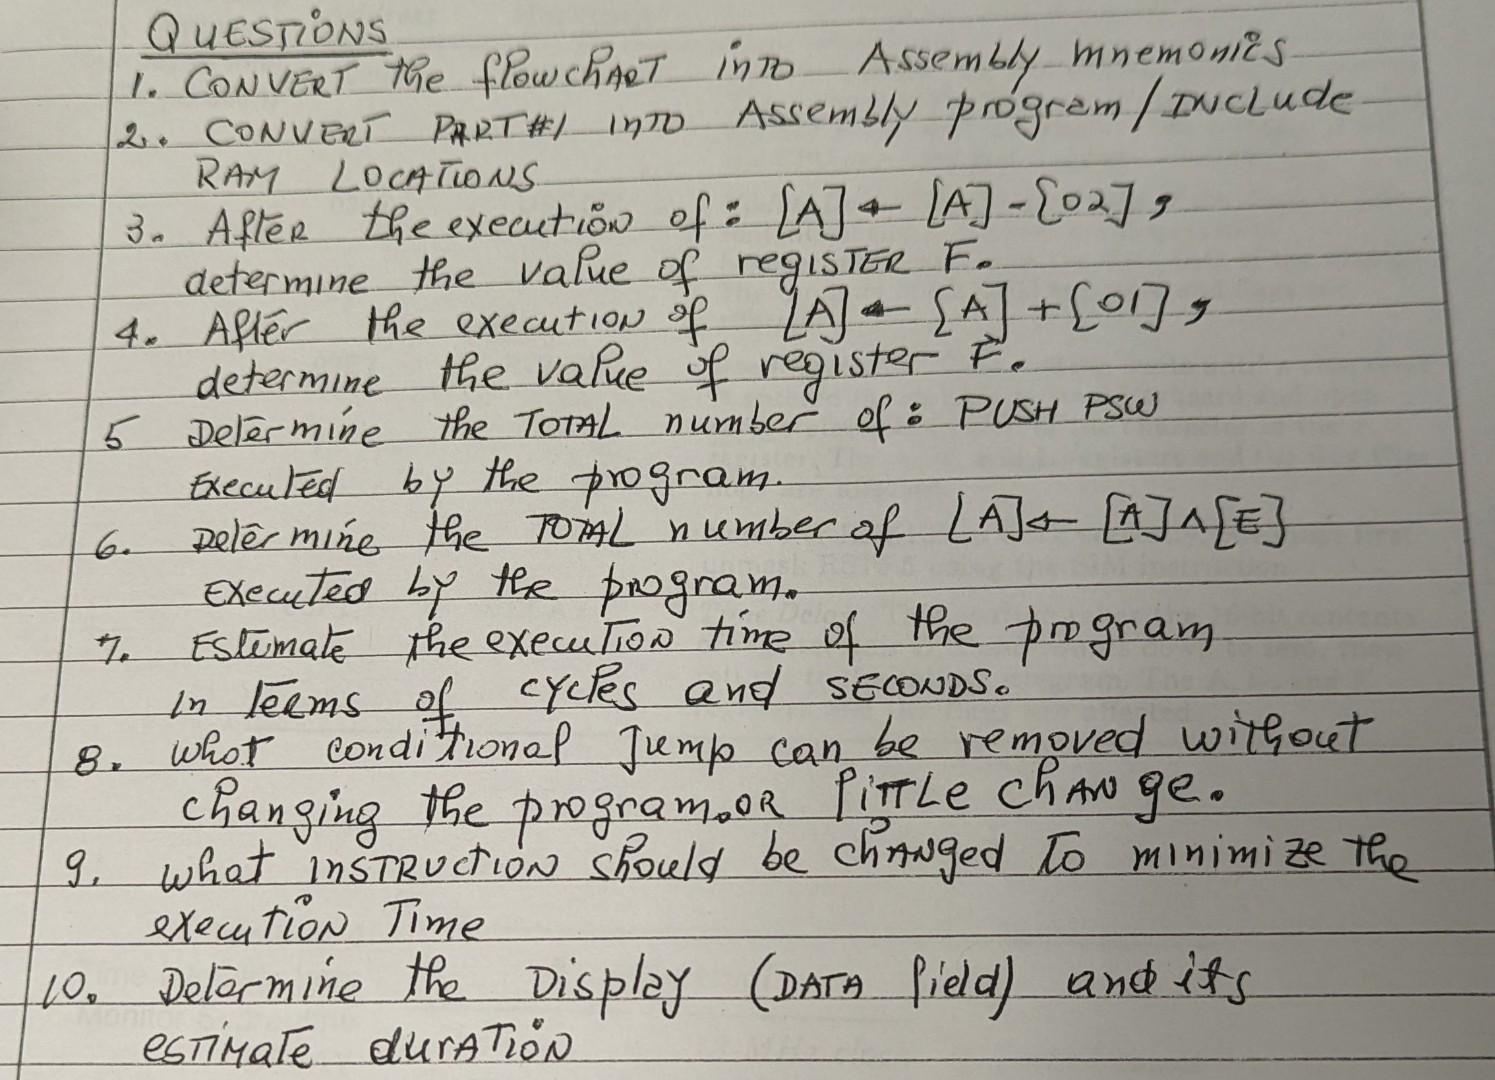 QUESTIONS
1. CONVERT the flowchART inTO Assembly mnemonics
2. CONVERT PART#1 INTO Assembly program/INCLUDE
RAM LOCATIONS
3. After the execution of: [A] ← [A] - [02],
determine the value of regISTER F.
4. After the execution of [A] ← [A] + [01],
determine the value of register F.
5 Determine the TOTAL number of: PUSH PSW
Executed by the program.
6. Determine the TOTAL number of [A] ← [A] ∧ [E]
Executed by the program.
7. Estimate the execution time of the program
in terms of cycles and SECONDS.
8. what conditional Jump can be removed without
changing the program.OR little change.
9. what INSTRUCTION should be changed to minimize the
execution Time
10. Determine the Display (DATA field) and its
estimate duration